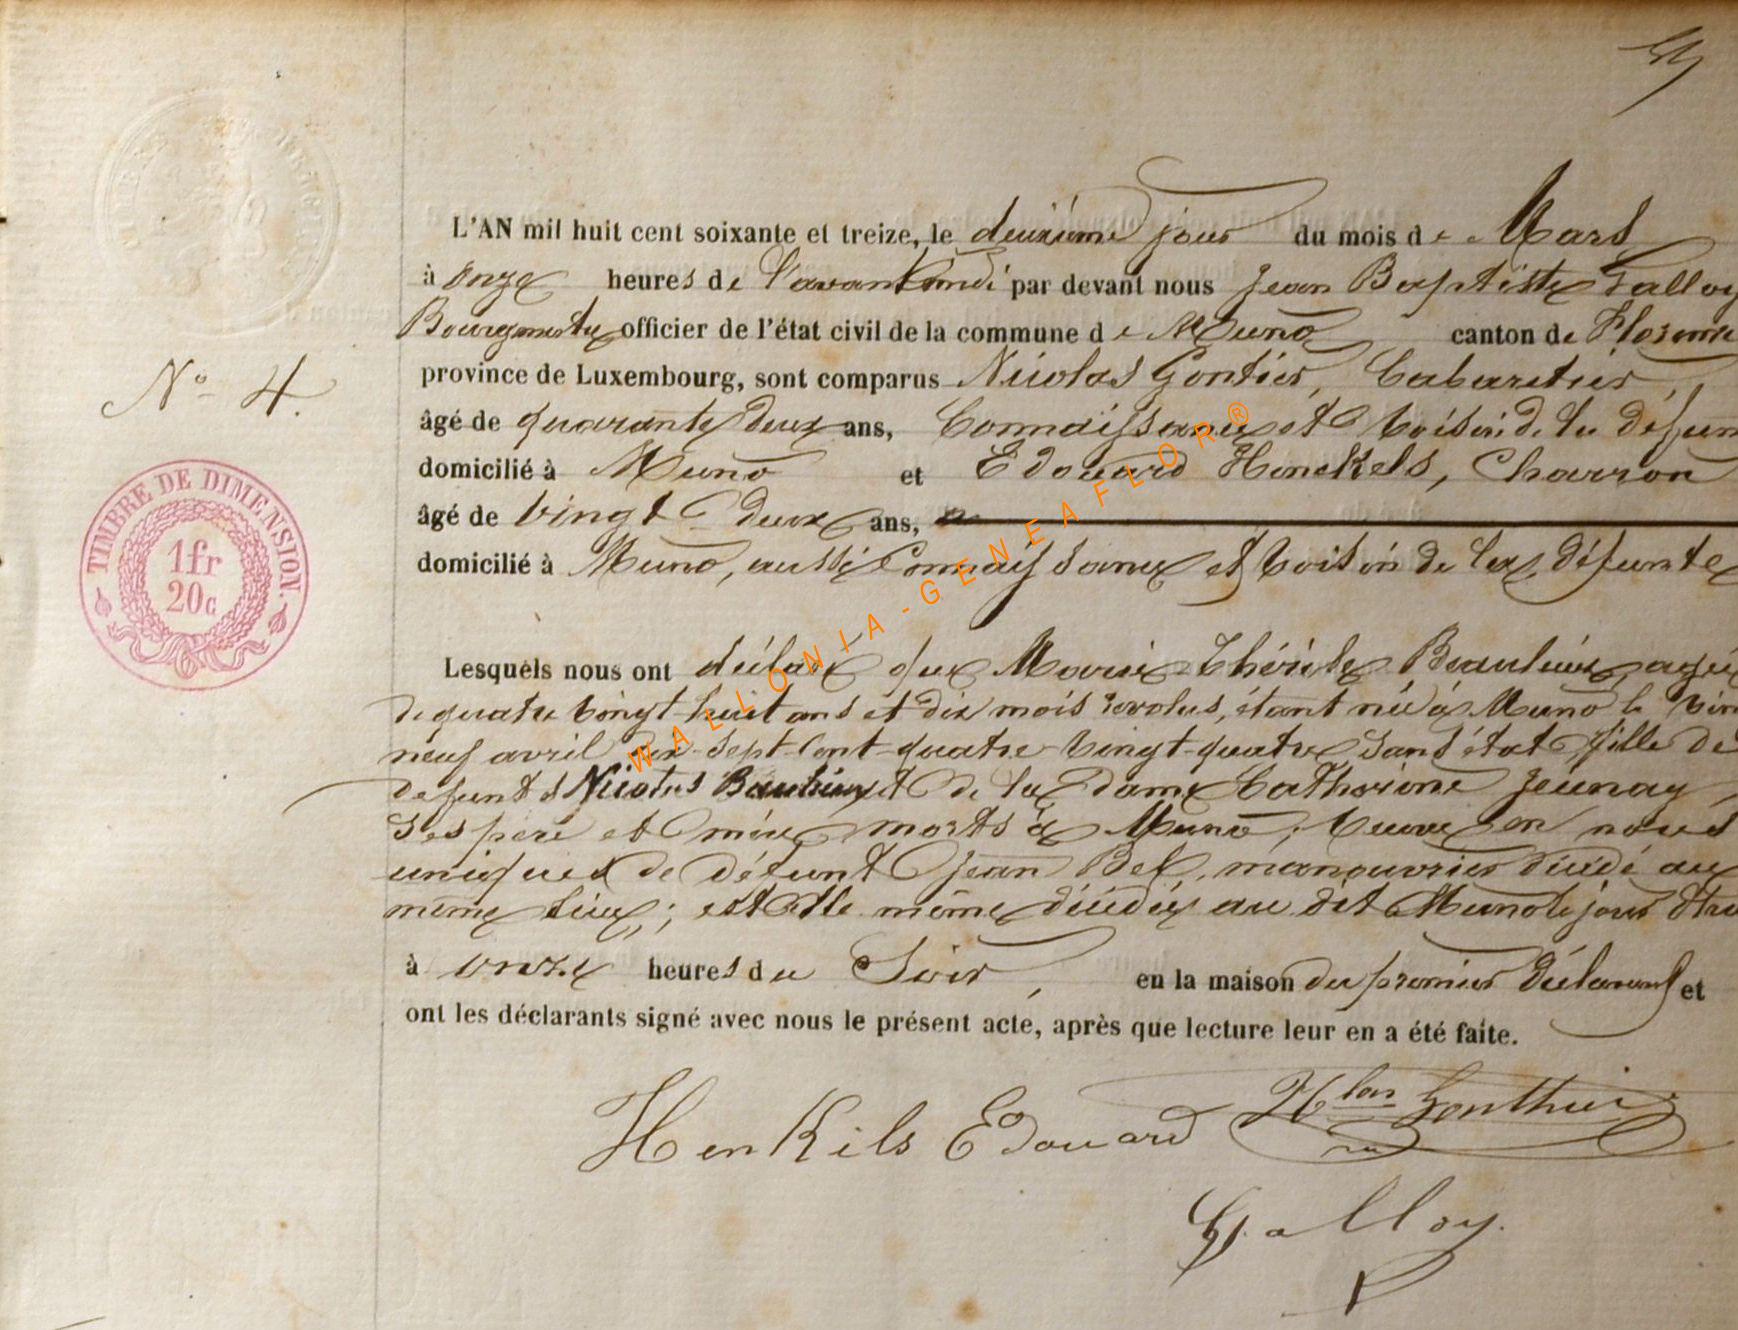 L'AN mil huit cent soixante et treize, le deuxième jour du mois de Mars
à onze heures de l'avant midi par devant nous Jean Baptiste Galloy
Bourgmestre officier de l'état civil de la commune de Muno canton de Floren
N° 4.
province de Luxembourg, sont comparus Nicolas Gontier, Cabaretier,
âgé de quarante deux ans, Connaissance et voisin de la défun
domicilié à Muno et Edouard Henckels, Charron
âgé de vingt deux ans,
domicilié à Muno, aussi Connaissance et voisin de la défunte
TIMBRE DE DIMENSION.
1fr
20c
Lesquels nous ont déclaré que Marie Thérèse Beaulieux, agée
de quatre vingt huit ans et dix mois révolus, étant née à Muno le vin
neuf avril dix-sept-cent-quatre-vingt-quatre sans état fille de
defunts Nicolas Beaulieux et de la dame Catherine Jeunay,
ses père et mère morts à Muno; veuve en noces
uniques de défunt Jean Bef, manouvrier décédé au
même lieu; est elle même décédée au dit Muno le jour d'h
à onze heures du Soir, en la maison du premier déclarant et
ont les déclarants signé avec nous le présent acte, après que lecture leur en a été faite.
HenKels Edouard Nlas Gonthier
Galloy.
WALLONIA-GENEAFLOR®